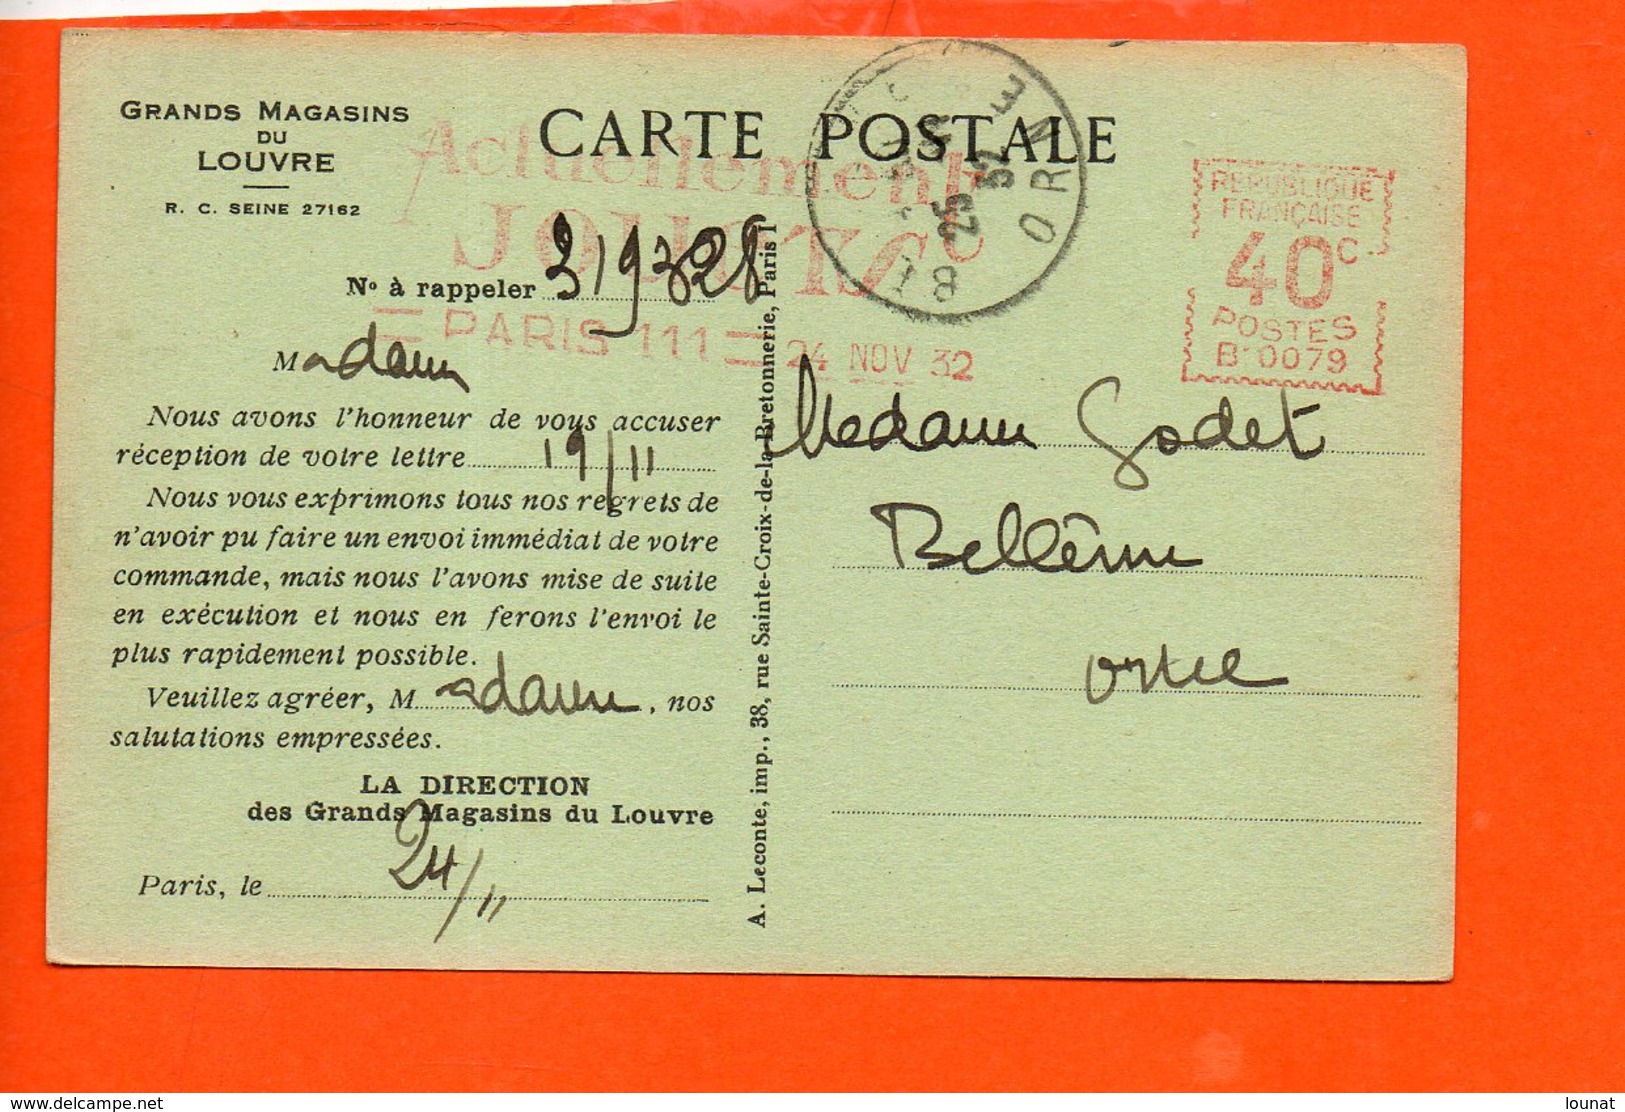 GRANDS MAGASINS
DU
LOUVRE
R. C. SEINE 27162
CARTE POSTALE
Actuellement
JOUETS
PARIS 111
24 NOV 32
25 32
ORNE
REPUBLIQUE
FRANÇAISE
40 C
POSTES
B 0079
No à rappeler 319328
Madame
Nous avons l'honneur de vous accuser
réception de votre lettre 19/11
Nous vous exprimons tous nos regrets de
n'avoir pu faire un envoi immédiat de votre
commande, mais nous l'avons mise de suite
en exécution et nous en ferons l'envoi le
plus rapidement possible.
Veuillez agréer, Madame, nos
salutations empressées.
LA DIRECTION
des Grands Magasins du Louvre
Paris, le 24/11
A. Leconte, imp., 38, rue Sainte-Croix-de-la-Bretonnerie, Paris
Madame Godet
Bellême
Orne
www.delcampe.net
lounat